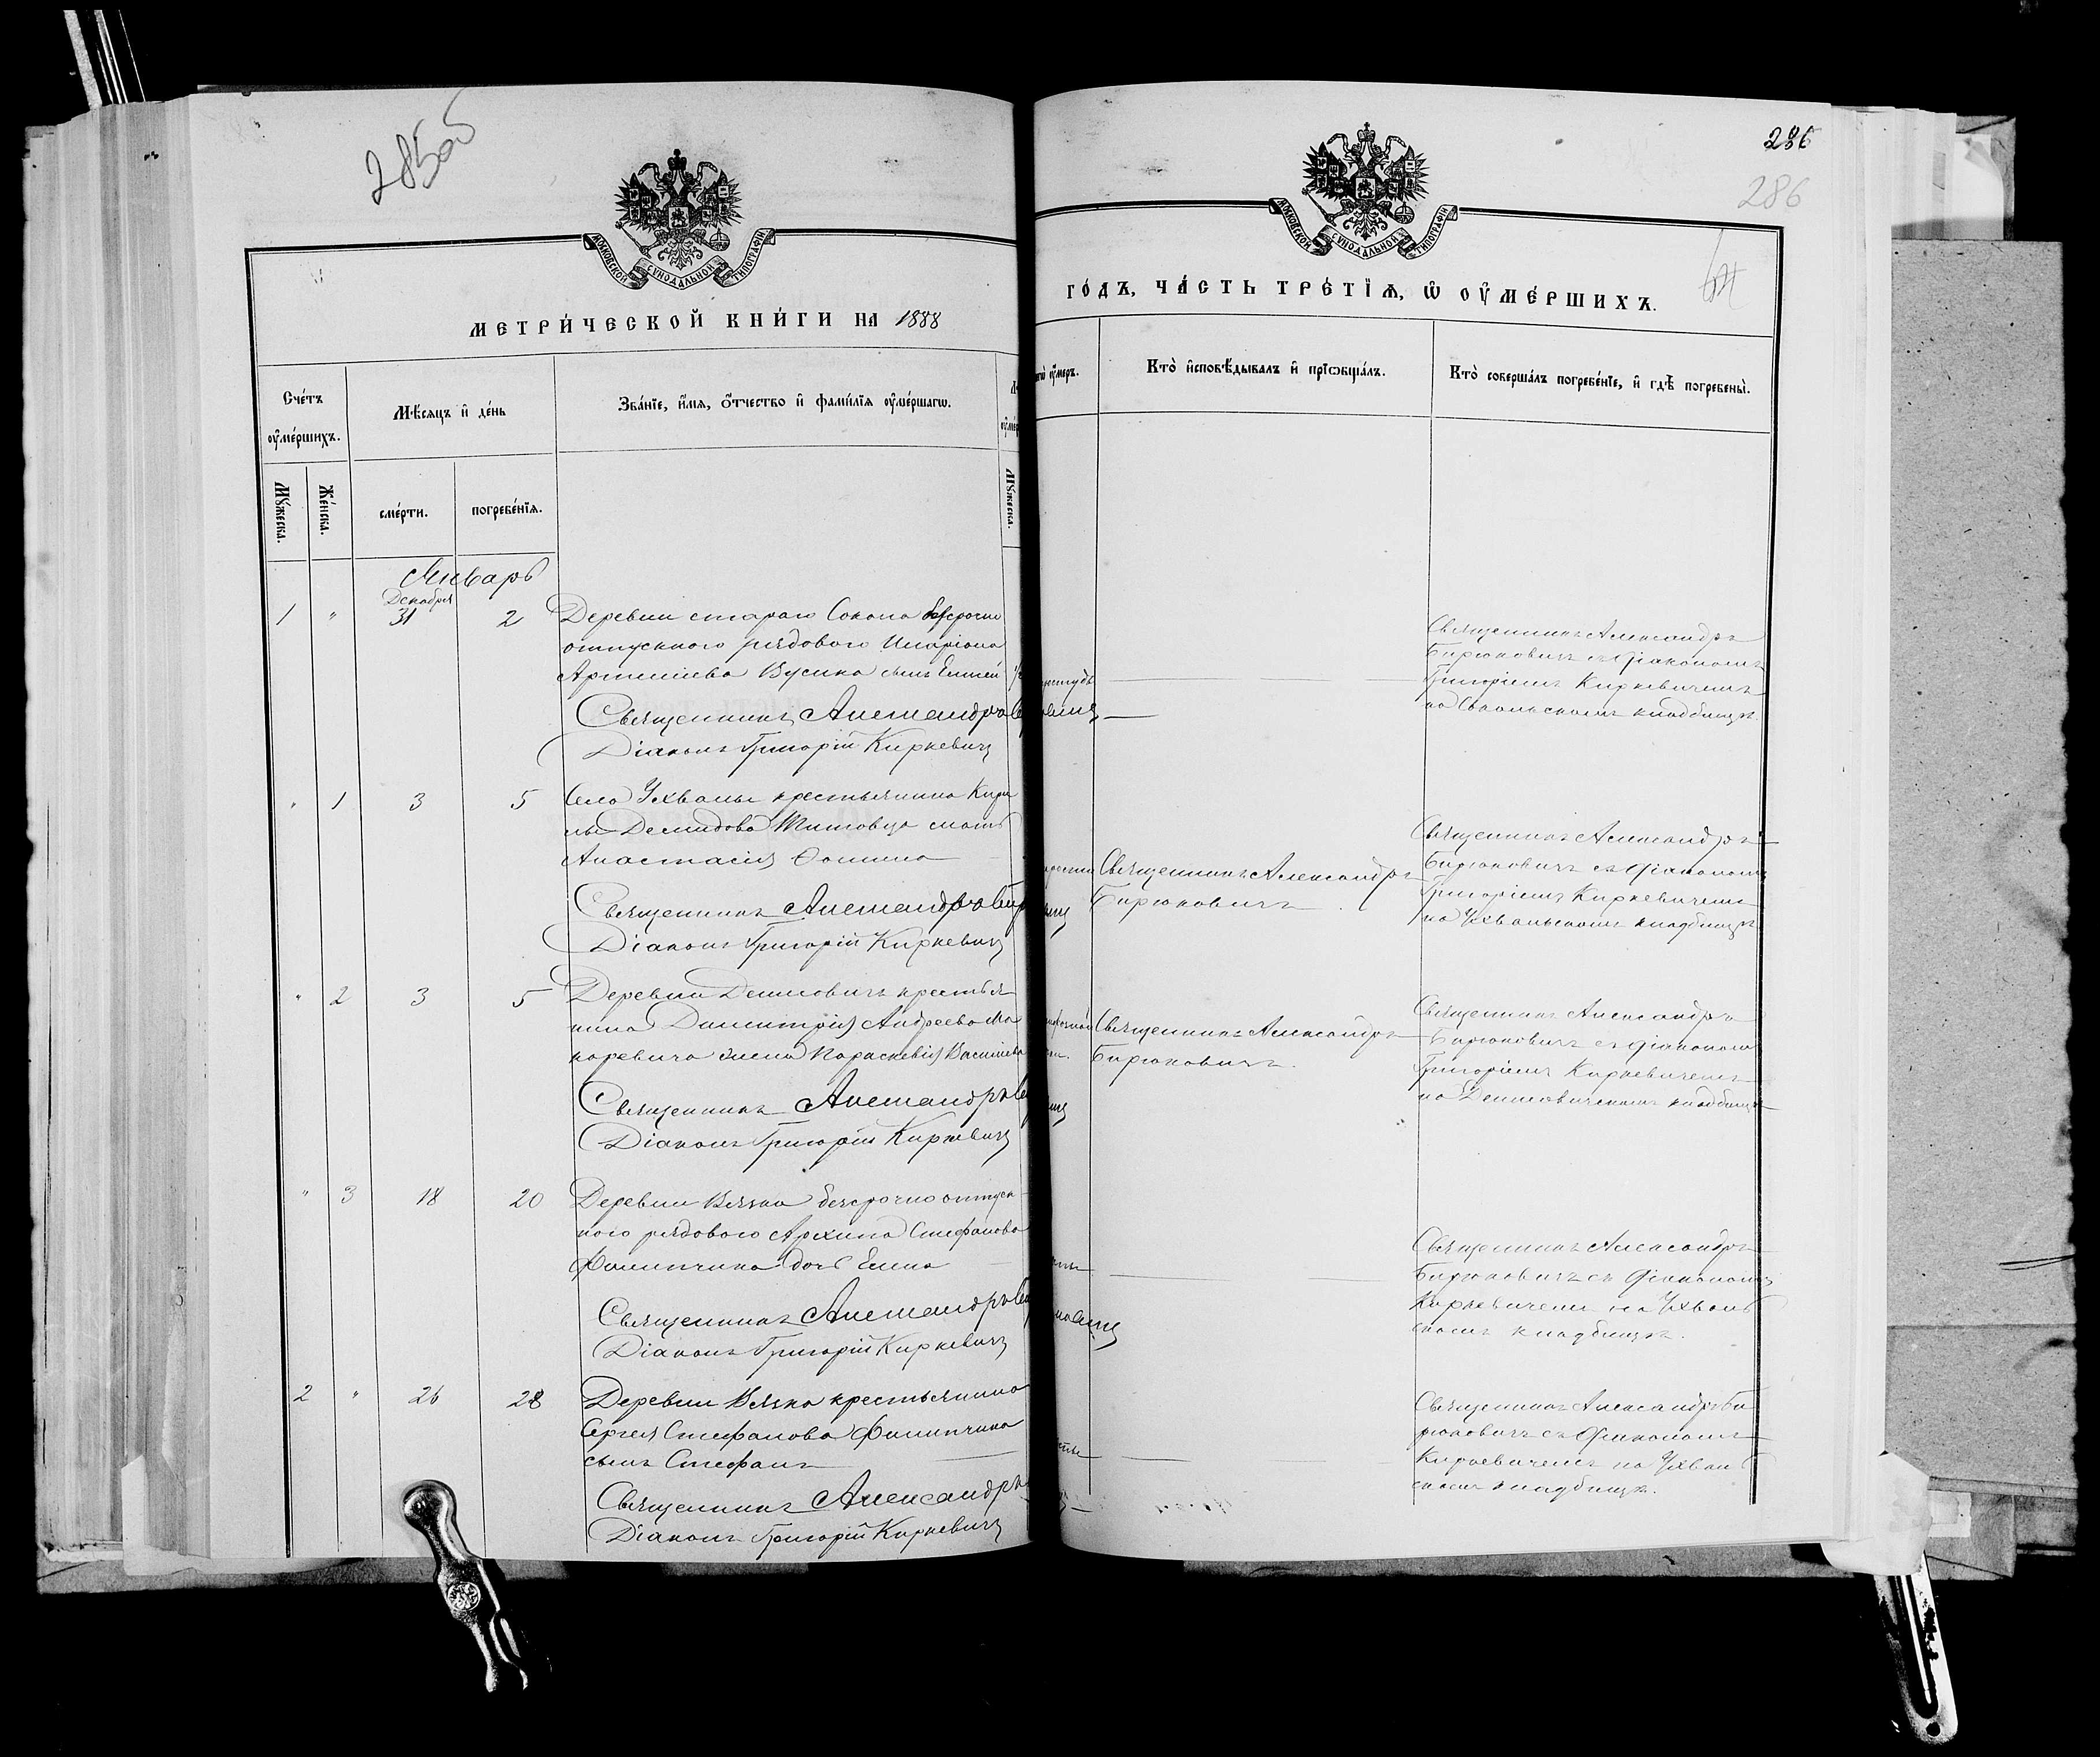 285об
МОСКОВСКОЙ СѴНОДАЛЬНОЙ ТИПОГРАФІИ
МЕТРИ́ЧЕСКОЙ КНИ́ГИ НА 1888
Сче́тъ оу҆ме́ршихъ.
Мѣ́сяцъ и҆ де́нь
Зва́нїе, и҆́мя, ѻ҆́тчество и҆ фами́лїя оу҆ме́ршагѡ.
Мꙋ́жеска.
Же́нска.
сме́рти.
погребе́нїѧ.
Мꙋ́жеска.
Январь
Декабря
1 " 31 2 Деревни стараго Сокола безсрочно
отпускного рядового Иларіона
Артемьева Бусина сынъ Евгеній
Священникъ Александръ
Діаконъ Григорій Киркевичъ
" 1 3 5 Села Ухвалы крестьянина Кири
лы Демидова Титовца мать
Анастасія Ѳомина
Священникъ Александръ Бир
Діаконъ Григорій Киркевичъ
" 2 3 5 Деревни Денисовичъ крестья
нина Димитрія Андреева Ма
каревича жена Параскевія Васильева
Священникъ Александръ
Діаконъ Григорій Киркевичъ
" 3 18 20 Деревни Вязка безсрочно отпуск
ного рядового Архипа Стефанова
Филипчика дочь Елена
Священникъ Александръ
Діаконъ Григорій Киркевичъ
2 " 26 28 Деревни Вязка крестьянина
Сергея Стефанова Филипчика
сынъ Стефанъ
Священникъ Александръ
Діаконъ Григорій Киркевичъ
286
286
МОСКОВСКОЙ СѴНОДАЛЬНОЙ ТИПОГРАФІИ
ГО́ДЪ, ЧА́СТЬ ТРЕ́ТЇѦ, Ѡ҆ ОУ҆МЕ́РШИХЪ.
оу҆́меръ.
Кто̀ и҆сповѣ́дывалъ и҆ прїѡбща́лъ.
Кто̀ соверша́лъ погребе́нїе, и҆ гдѣ̀ погребены̀.
Священникъ Александръ
Бирюковичъ съ діакономъ
Григоріемъ Киркевичемъ
на Сокольскомъ кладбищѣ.
Священникъ Александръ
Бирюковичъ.
Священникъ Александръ
Бирюковичъ съ діакономъ
Григоріемъ Киркевичемъ
на Ухвальскомъ кладбищѣ
Священникъ Александръ
Бирюковичъ.
Священникъ Александръ
Бирюковичъ съ діакономъ
Григоріемъ Киркевичемъ
на Денисовичскомъ кладбищѣ
Священникъ Александръ
Бирюковичъ съ діакономъ
Киркевичемъ на Ухваль
скомъ кладбищѣ.
Священникъ Александръ Би
рюковичъ съ діакономъ
Киркевичемъ на Ухваль
скомъ кладбищѣ.